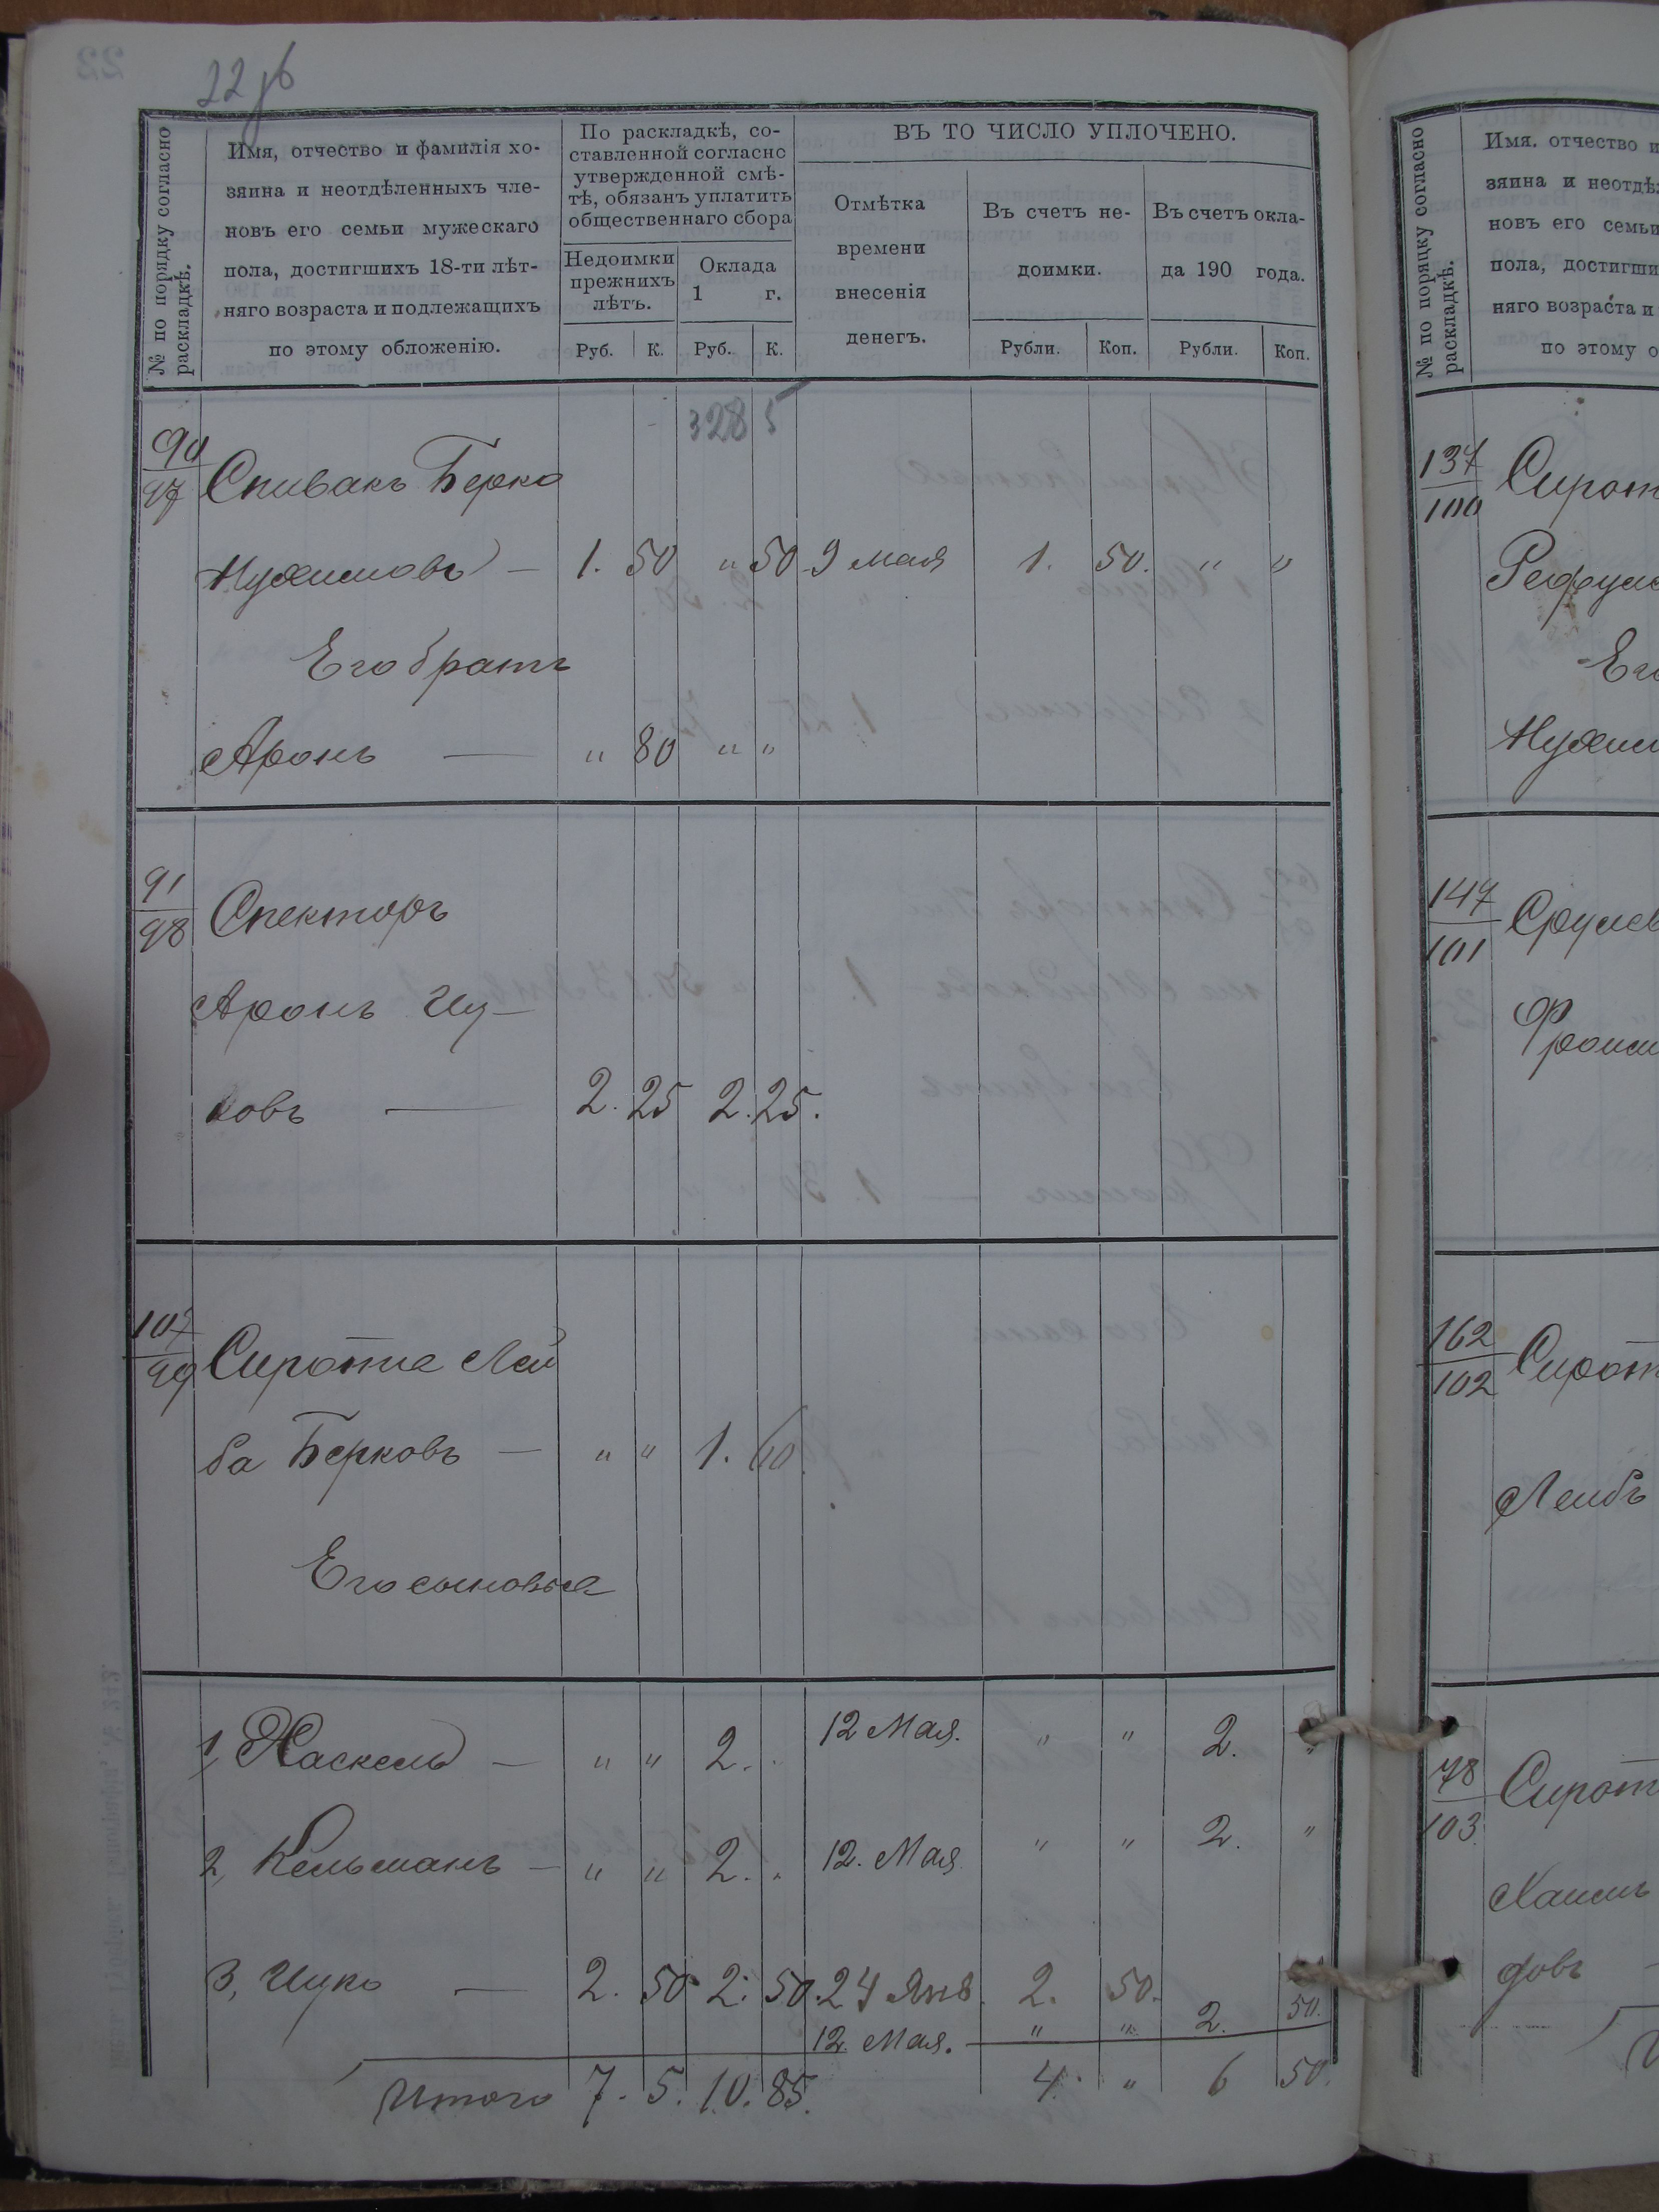 22 об
№ по порядку согласно раскладкѣ.
Имя, отчество и фамилія хо-
зяина и неотдѣленныхъ чле-
новъ его семьи мужескаго
пола, достигшихъ 18-ти лѣт-
няго возраста и подлежащихъ
по этому обложенію.
По раскладкѣ, со-
ставленной согласно
утвержденной смѣ-
тѣ, обязанъ уплатить
общественнаго сбора
Недоимки прежнихъ лѣтъ.
Оклада 1 г.
ВЪ ТО ЧИСЛО УПЛОЧЕНО.
Отмѣтка времени внесенія денегъ.
Въ счетъ не-
доимки.
Въ счетъ окла-
да 190 года.
Руб. К. Руб. К. Рубли. Коп. Рубли. Коп.
328 5
90/97 Спивакъ Берко
Нухимовъ — 1. 50 " 50 9 мая 1. 50. " "
Его братъ
Аронъ — " 80 " "
91/98 Спекторъ
Аронъ Иц-
ковъ — 2. 25 2. 25.
107/99 Сиротка Лей
ба Берковъ — " " 1. 60.
Его сыновья
1, Хаскель — " " 2. " 12 Мая. " " 2. "
2, Кельманъ — " " 2. " 12. Мая " " 2. "
3, Ицко — 2. 50 2. 50. 24 Янв. 2. 50.
12. Мая. " " 2. 50.
Итого 7. 5. 10. 85. 4. " 6 50.
№ по порядку согласно раскладкѣ.
Имя. отчество и
зяина и неотдѣ
новъ его семьи
пола, достигши
няго возраста и
по этому о
137/100 Сирот
Его
Нухим
147/101 Срулев
162/102 Сирот
Лейбъ
78/103 Сирот
Хаимъ
довъ